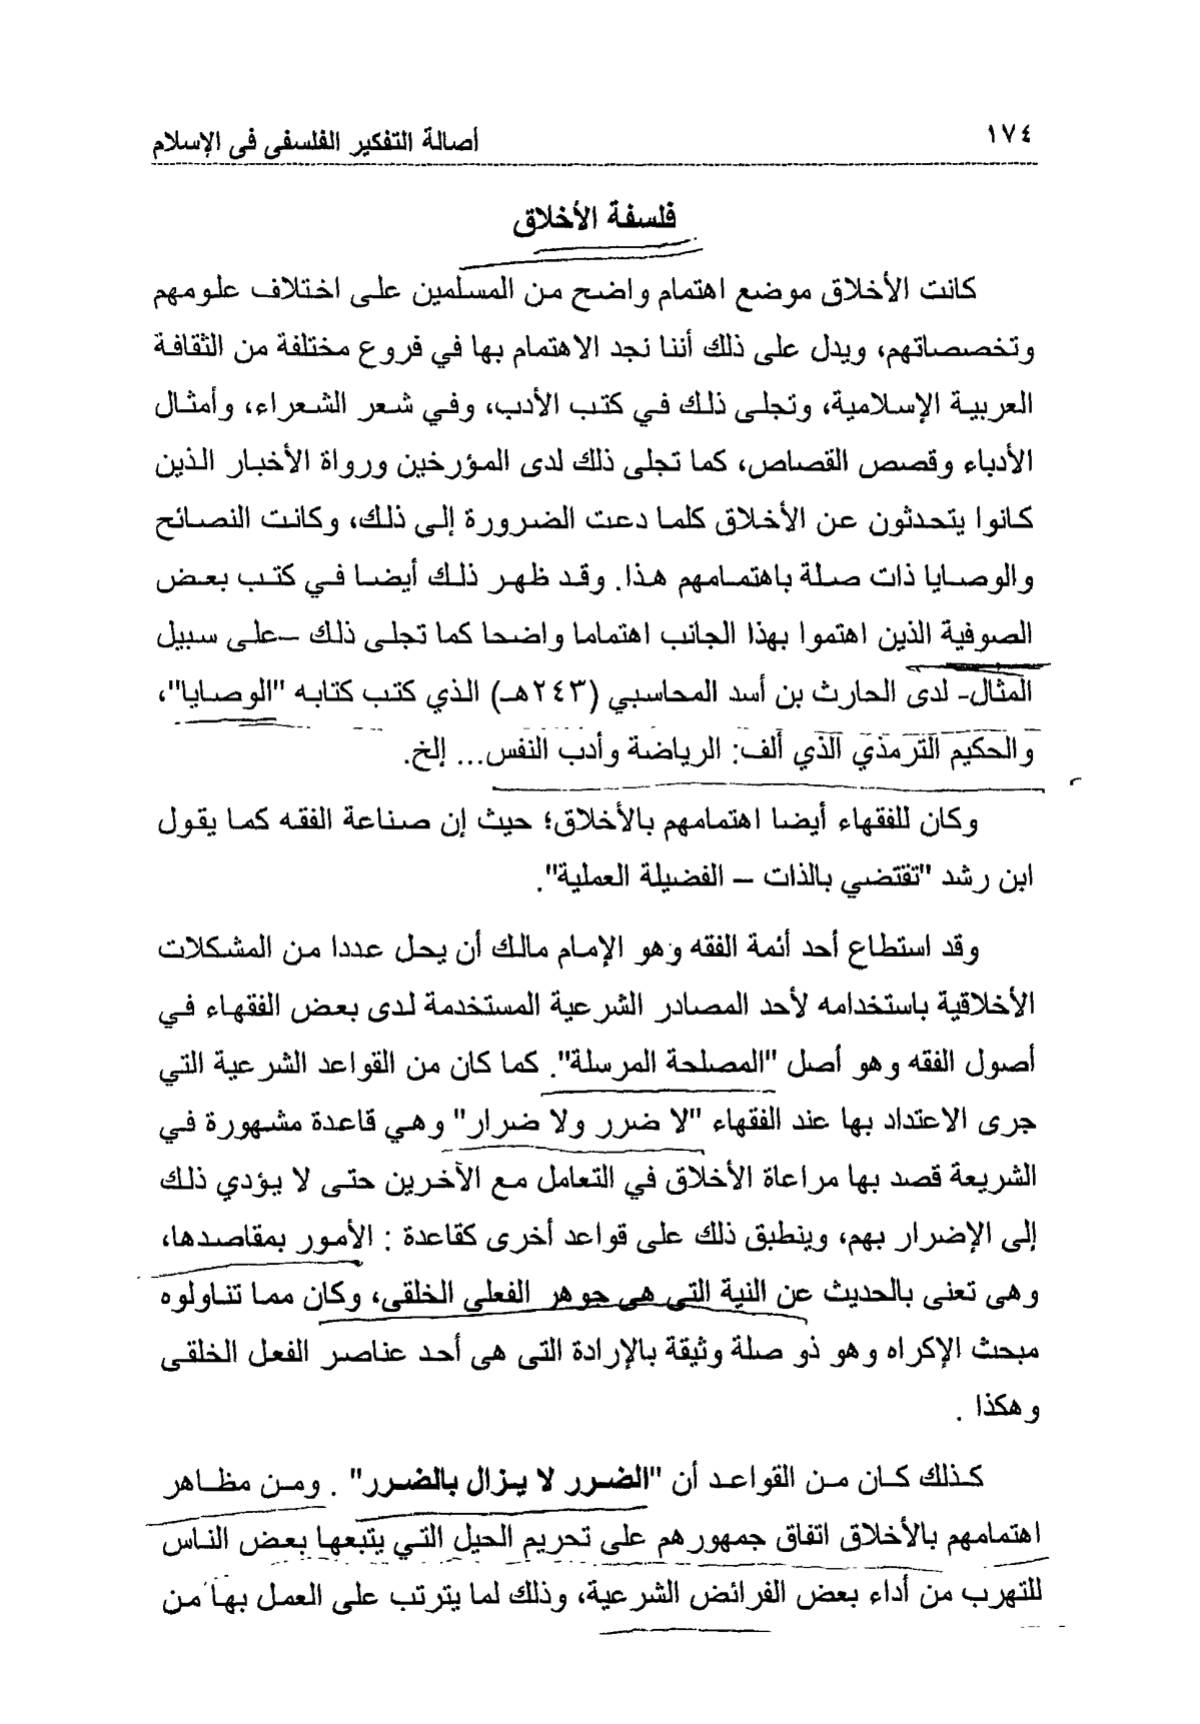 ١٧٤
أصالة التفكير الفلسفى فى الإسلام
فلسفة الأخلاق
كانت الأخلاق موضع اهتمام واضح من المسلمين على اختلاف علومهم
وتخصصاتهم، ويدل على ذلك أننا نجد الاهتمام بها في فروع مختلفة من الثقافة
العربية الإسلامية، وتجلى ذلك في كتب الأدب، وفي شعر الشعراء، وأمثال
الأدباء وقصص القصاص، كما تجلى ذلك لدى المؤرخين ورواة الأخبار الذين
كانوا يتحدثون عن الأخلاق كلما دعت الضرورة إلى ذلك، وكانت النصائح
والوصايا ذات صلة باهتمامهم هذا. وقد ظهر ذلك أيضا في كتب بعض
الصوفية الذين اهتموا بهذا الجانب اهتماما واضحا كما تجلى ذلك –على سبيل
المثال- لدى الحارث بن أسد المحاسبي (٢٤٣هـ) الذي كتب كتابه "الوصايا"،
والحكيم الترمذي الذي ألف: الرياضة وأدب النفس... إلخ.
وكان للفقهاء أيضا اهتمامهم بالأخلاق؛ حيث إن صناعة الفقه كما يقول
ابن رشد "تقتضي بالذات – الفضيلة العملية".
وقد استطاع أحد أئمة الفقه وهو الإمام مالك أن يحل عددا من المشكلات
الأخلاقية باستخدامه لأحد المصادر الشرعية المستخدمة لدى بعض الفقهاء في
أصول الفقه وهو أصل "المصلحة المرسلة". كما كان من القواعد الشرعية التي
جرى الاعتداد بها عند الفقهاء "لا ضرر ولا ضرار" وهي قاعدة مشهورة في
الشريعة قصد بها مراعاة الأخلاق في التعامل مع الآخرين حتى لا يؤدي ذلك
إلى الإضرار بهم، وينطبق ذلك على قواعد أخرى كقاعدة : الأمور بمقاصدها،
وهى تعنى بالحديث عن النية التى هى جوهر الفعلى الخلقى، وكان مما تناولوه
مبحث الإكراه وهو ذو صلة وثيقة بالإرادة التى هى أحد عناصر الفعل الخلقى
وهكذا .
كذلك كان من القواعد أن "الضرر لا يزال بالضرر" . ومن مظاهر
اهتمامهم بالأخلاق اتفاق جمهورهم على تحريم الحيل التي يتبعها بعض الناس
للتهرب من أداء بعض الفرائض الشرعية، وذلك لما يترتب على العمل بها من